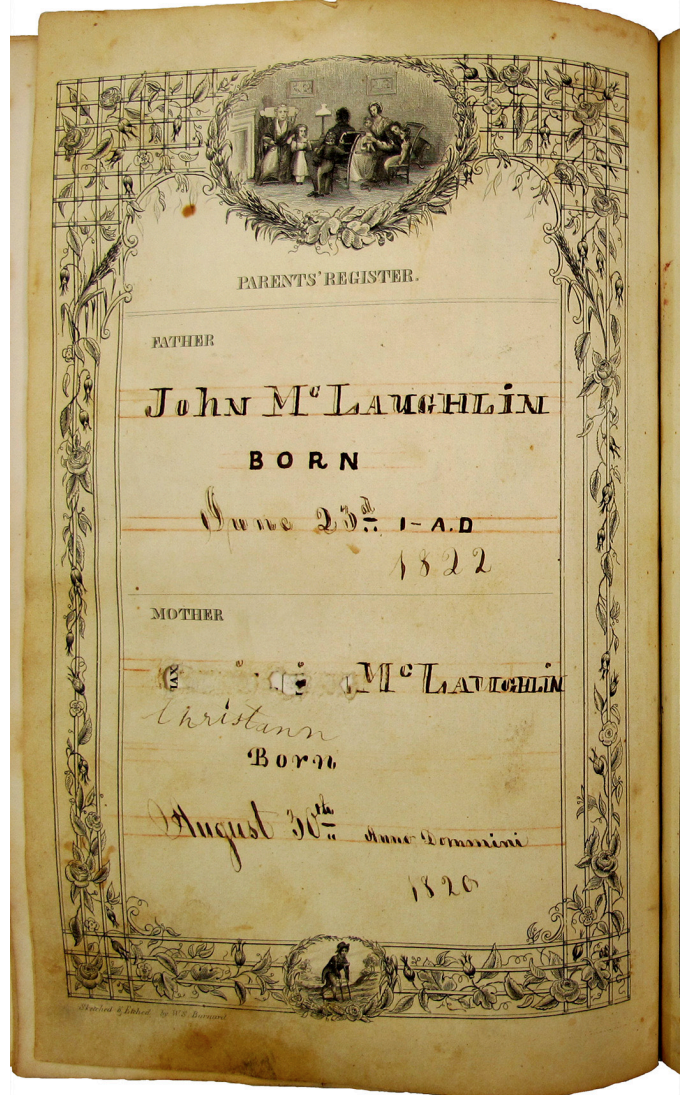 PARENTS' REGISTER.
FATHER
John Mc LAUGHLIN
BORN
June 23rd 1-A.D
1822
MOTHER
Mc LAUGHLIN
Christann
Born
August 30th Anno Dommini
1820
Sketched & Etched by W.S. Barnard